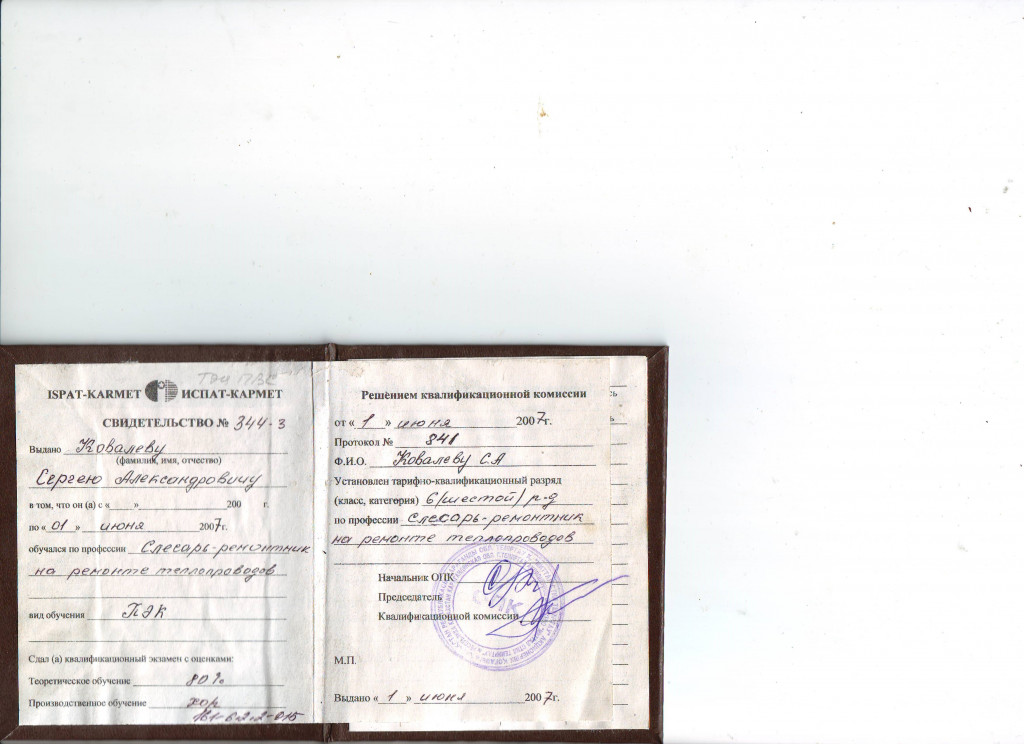 ТЭЦ ПВС
ISPAT-KARMET ИСПАТ-КАРМЕТ
СВИДЕТЕЛЬСТВО № 344-3
Выдано Ковалеву
(фамилия, имя, отчество)
Сергею Александровичу
в том, что он (а) с « » 200 г.
по « 01 » июня 2007г.
обучался по профессии Слесарь-ремонтник
на ремонте теплопроводов
вид обучения ПЭК
Сдал (а) квалификационный экзамен с оценками:
Теоретическое обучение 80%
Производственное обучение хор
161-6.2.2-015
Решением квалификационной комиссии
от « 1 » июня 2007г.
Протокол № 841
Ф.И.О. Ковалеву С.А
Установлен тарифно-квалификационный разряд
(класс, категория) 6/шестой/ р-д
по профессии Слесарь-ремонтник
на ремонте теплопроводов
Начальник ОПК
Председатель
Квалификационной комиссии
М.П.
Выдано « 1 » июня 2007г.